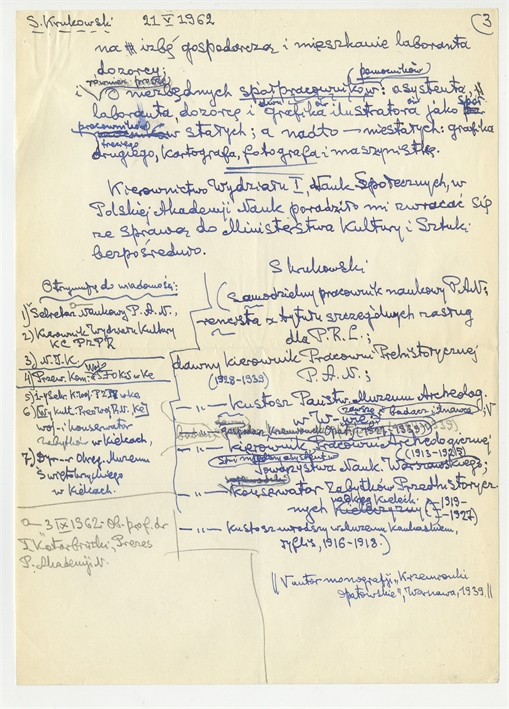 S. Krukowski 21 V 1962
3
na izbę gospodarczą i mieszkanie laboranta
dozorcy;
(pomocników)
i niezbędnych współpracowników: asystenta,
laboranta, dozorcę i grafika ilustratora jako
pracowników stałych; a nadto niestałych: grafika
drugiego, kartografa, fotografa i maszynistkę.
Kierownictwo Wydziału I, Nauk Społecznych, w
Polskiej Akademji Nauk poradziło mi zwracać się
ze sprawą do Ministerstwa Kultury i Sztuki
bezpośrednio.
S Krukowski
(samodzielny pracownik naukowy P.A.N;
rencista z tytułu szczególnych zasług
dla P.R.L.;
dawny kierownik Pracowni Prehistorycznej
P.A.N.;
(1928-1939)
—„— kustosz Państw. Muzeum Archeolog.
w W-wie
zawsze badacz
—„— kierownik Pracowni Archeologicznej
(1913-1925)
Towarzystwa Nauk. Warszawskiego;
—„— Konserwator Zabytków Przedhistorycz
nych
1919-
1927)
—„— kustosz muzeum Kaukaskiem,
Tyflis, 1916-1918.)
Otrzymują do wiadomości:
1) Sekretarz Naukowy P.A.N.,
2) Kierownik Wydziału Kultury
KC PZPR
3) N.I.K.
4) Przew. Kom.
5) I Sekr. KWoj. PZPR
6) Wy. Kult. Prez. Woj. R.N. Ke
woj-i konserwator
zabytków w Kielcach,
7) Dyr. Okręg. Muzeum
Świętokrzyskiego
w Kielcach.
3 IX 1962: Ob. prof. dr
T. Kotarbiński, Prezes
P. Akademji N.
|| V autor monografji „Krzemionki
Opatowskie", Warszawa, 1939. ||